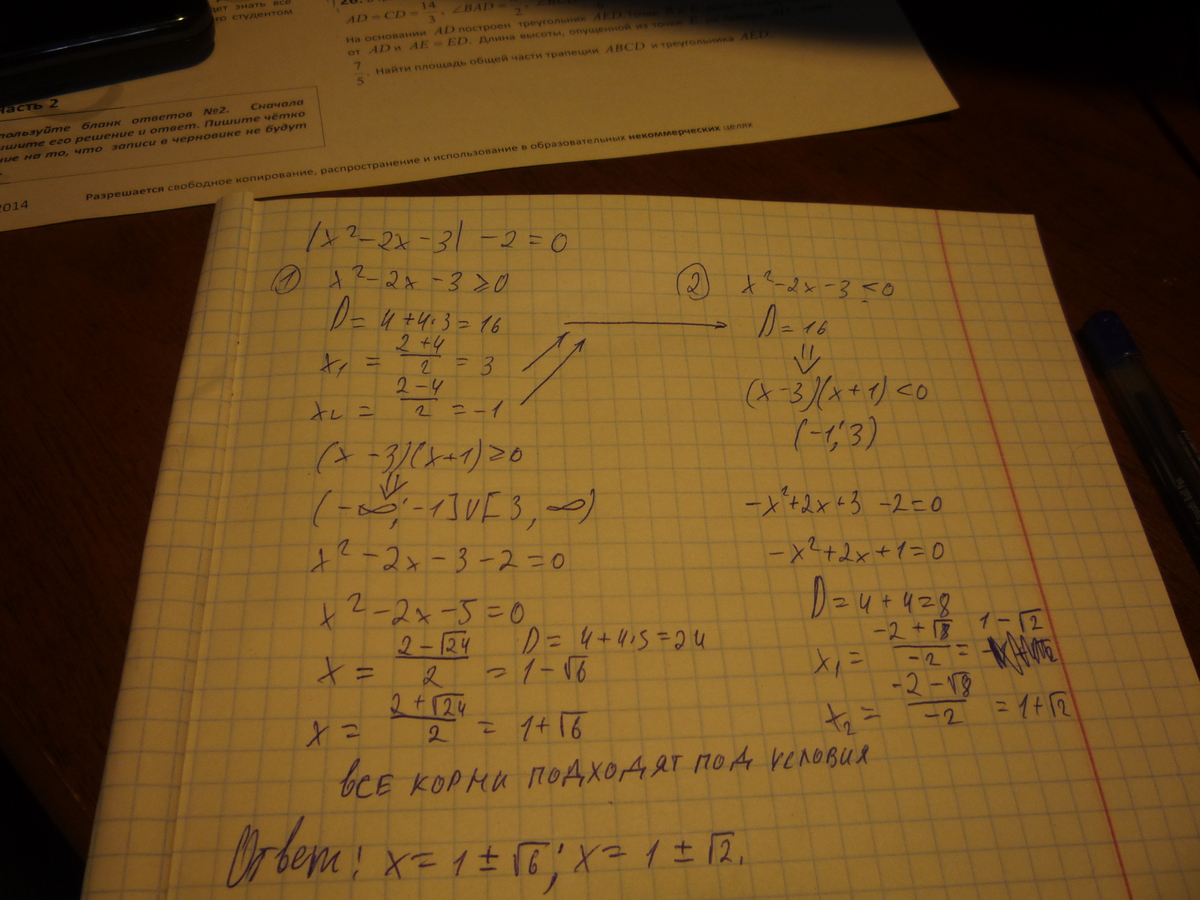 дет знать все
о студентом
AD = CD = 14/3, ∠BAD =
На основании AD построен треугольник AED.
от AD и AE = ED. Длина высоты, опущенной из точки
7/5. Найти площадь общей части трапеции ABCD и треугольника AED.
Часть 2
пользуйте бланк ответов №2. Сначала
ишите его решение и ответ. Пишите чётко
ние на то, что записи в черновике не будут
Разрешается свободное копирование, распространение и использование в образовательных некоммерческих целях
2014
|x²-2x-3| -2=0
① x²-2x-3≥0
D=4+4·3=16
x₁ = (2+4)/2 = 3
x₂ = (2-4)/2 = -1
(x-3)(x+1)≥0
⇓
(-∞; -1]∪[3, ∞)
x²-2x-3-2=0
x²-2x-5=0
D=4+4·5=24
x = (2-√24)/2 = 1-√6
x = (2+√24)/2 = 1+√6
② x²-2x-3<0
D=16
⇓
(x-3)(x+1)<0
(-1; 3)
-x²+2x+3-2=0
-x²+2x+1=0
D=4+4=8
x₁ = (-2+√8)/-2 = 1-√2
x₂ = (-2-√8)/-2 = 1+√2
все корни подходят под условия
Ответ: x=1±√6; x=1±√2.